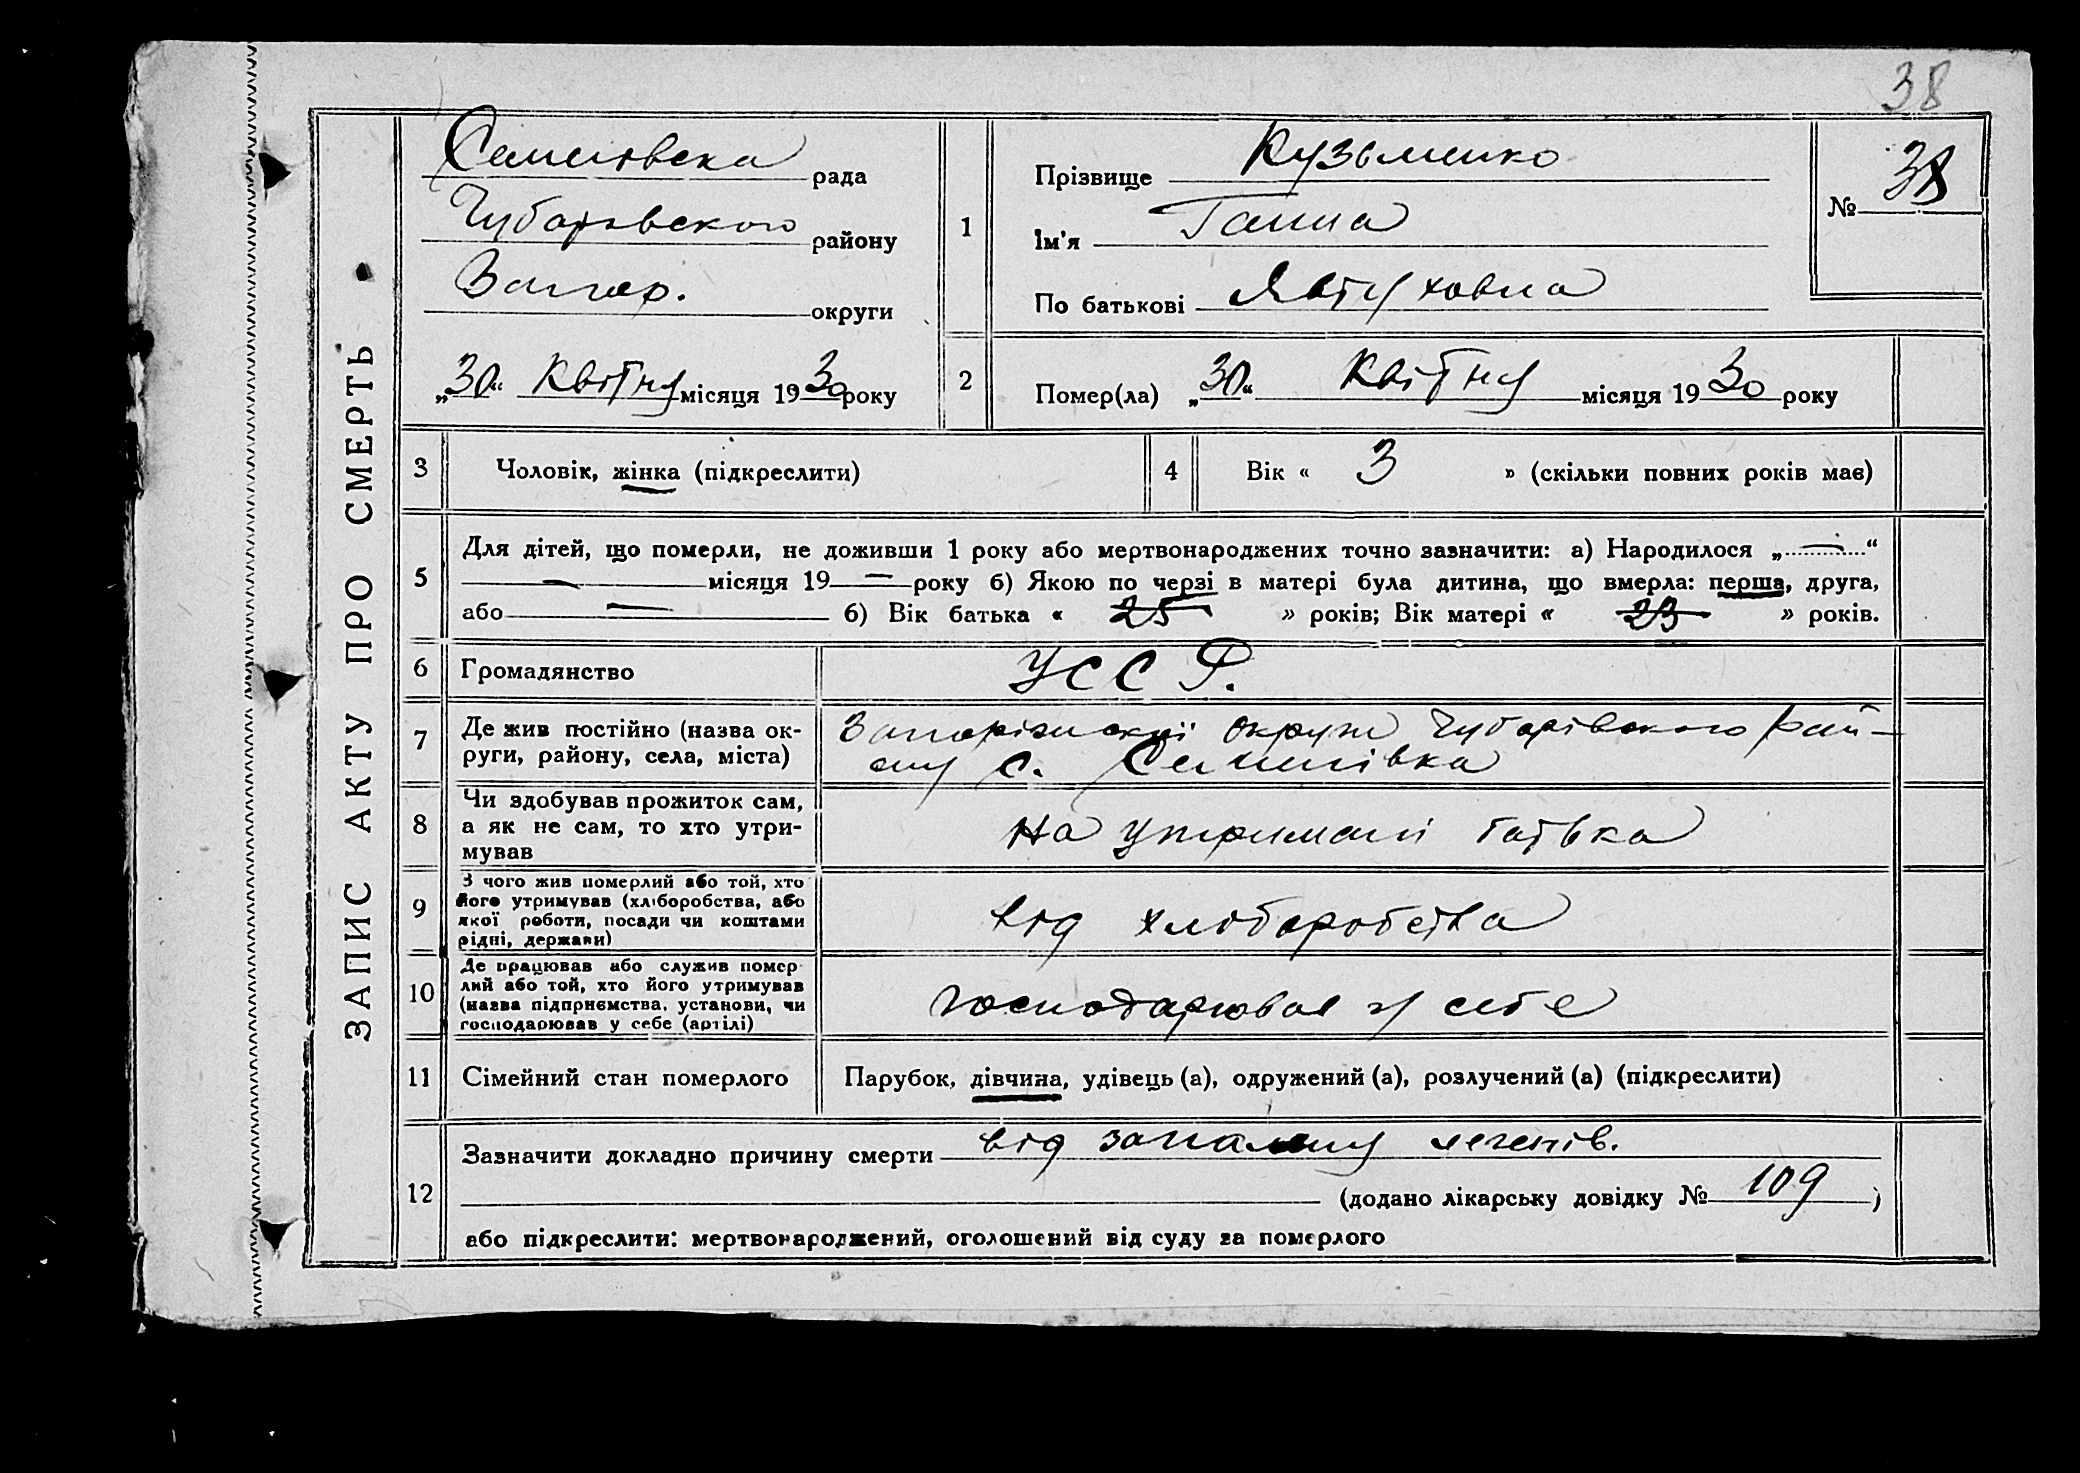 38
ЗАПИС АКТУ ПРО СМЕРТЬ
Семенівська рада
Чубарівского району
Запор. округи
„30“ Квітня місяця 1930 року
1
Прізвище Кузьменко
Імʼя Ганна
По батькові Явтуховна
№ 38
2
Помер(ла) „30“ Квітня місяця 1930 року
3
Чоловік, жінка (підкреслити)
4
Вік « 3 » (скільки повних років має)
5
Для дітей, що померли, не доживши 1 року або мертвонароджених точно зазначити: а) Народилося „—“
— місяця 19—року б) Якою по черзі в матері була дитина, що вмерла: перша, друга,
або — б) Вік батька « 25 » років; Вік матері « 23 » років.
6
Громадянство УССР.
7
Де жив постійно (назва ок-
руги, району, села, міста)
Запоріжської округи Чубарівского рай-
ону с. Семенівка
8
Чи здобував прожиток сам,
а як не сам, то хто утри-
мував
На утримані батька
9
З чого жив померлий або той, хто
його утримував (хліборобства, або
якої роботи, посади чи коштами
рідні, держави)
від хліборобства
10
Де працював або служив помер
лий або той, хто його утримував
(назва підприємства, установи, чи
господарював у себе (артілі)
господарював у себе
11
Сімейний стан померлого
Парубок, дівчина, удівець (а), одружений (а), розлучений (а) (підкреслити)
12
Зазначити докладно причину смерти від запаленя легенів.
(додано лікарську довідку № 109)
або підкреслити: мертвонароджений, оголошений від суду за померлого